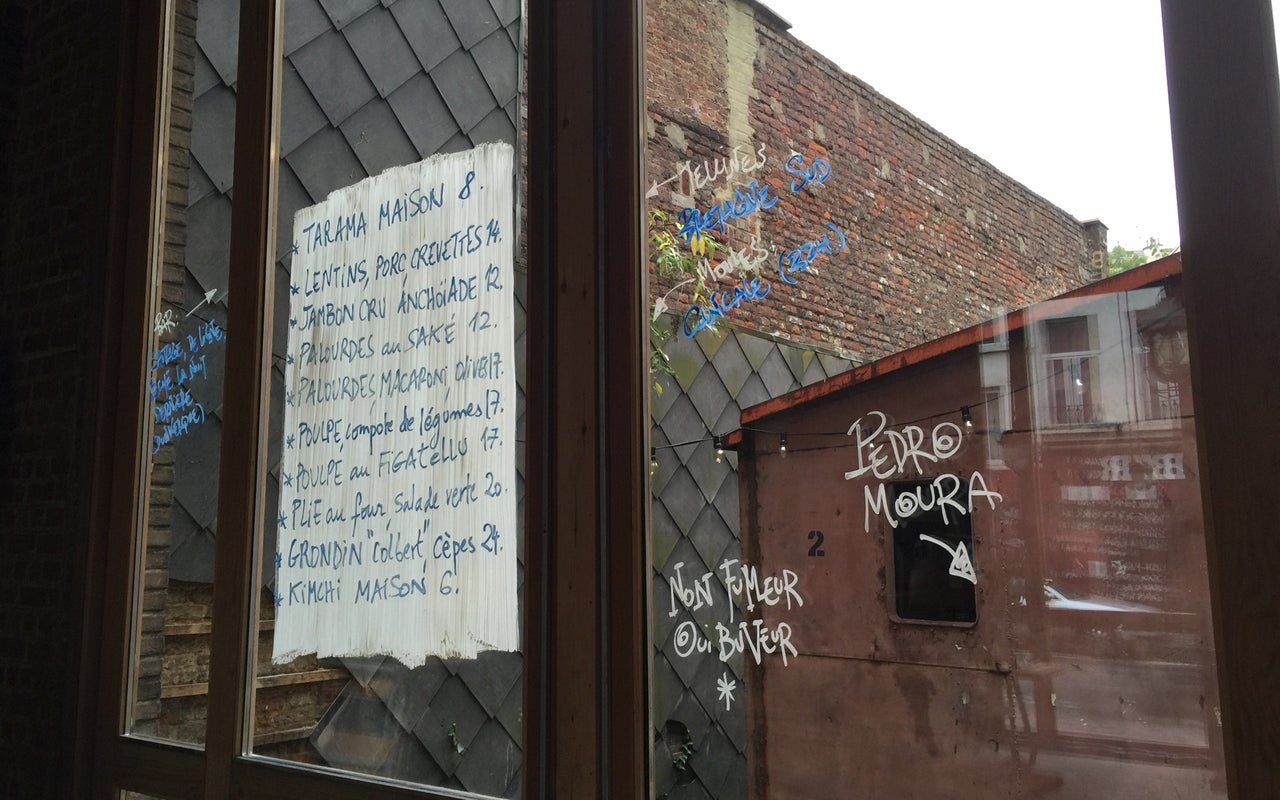 * TARAMA MAISON 8.
* LENTINS, PORC, CREVETTES 14.
* JAMBON CRU ANCHOÏADE 12.
* PALOURDES au SAKÉ 12.
* PALOURDES MACARONI OLIVE 17.
* POULPE compote de légumes 17.
* POULPE au FIGATELLU 17.
* PLIE au four Salade verte 20.
* GRONDIN "Colbert" Cèpes 24.
* KIMCHI MAISON 6.
BAR
DE LIGNE,
LA NUIT
DERNIÈRE
TELLINES
BRETAGNE SUD
PEDRO
MOURA
2
NON FUMEUR
OUI BUVEUR
*